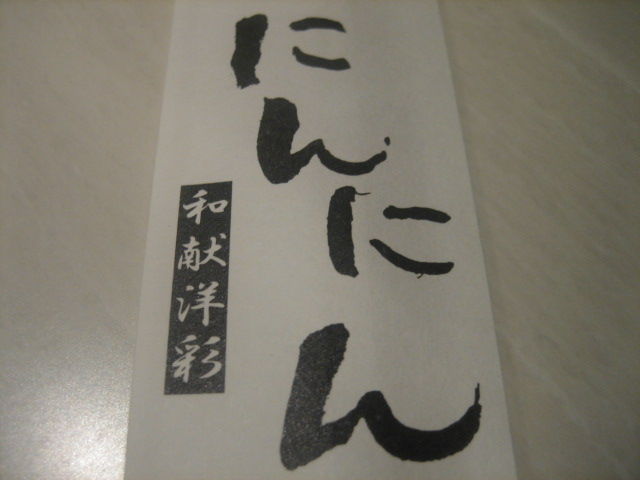 にんにん
和献洋彩